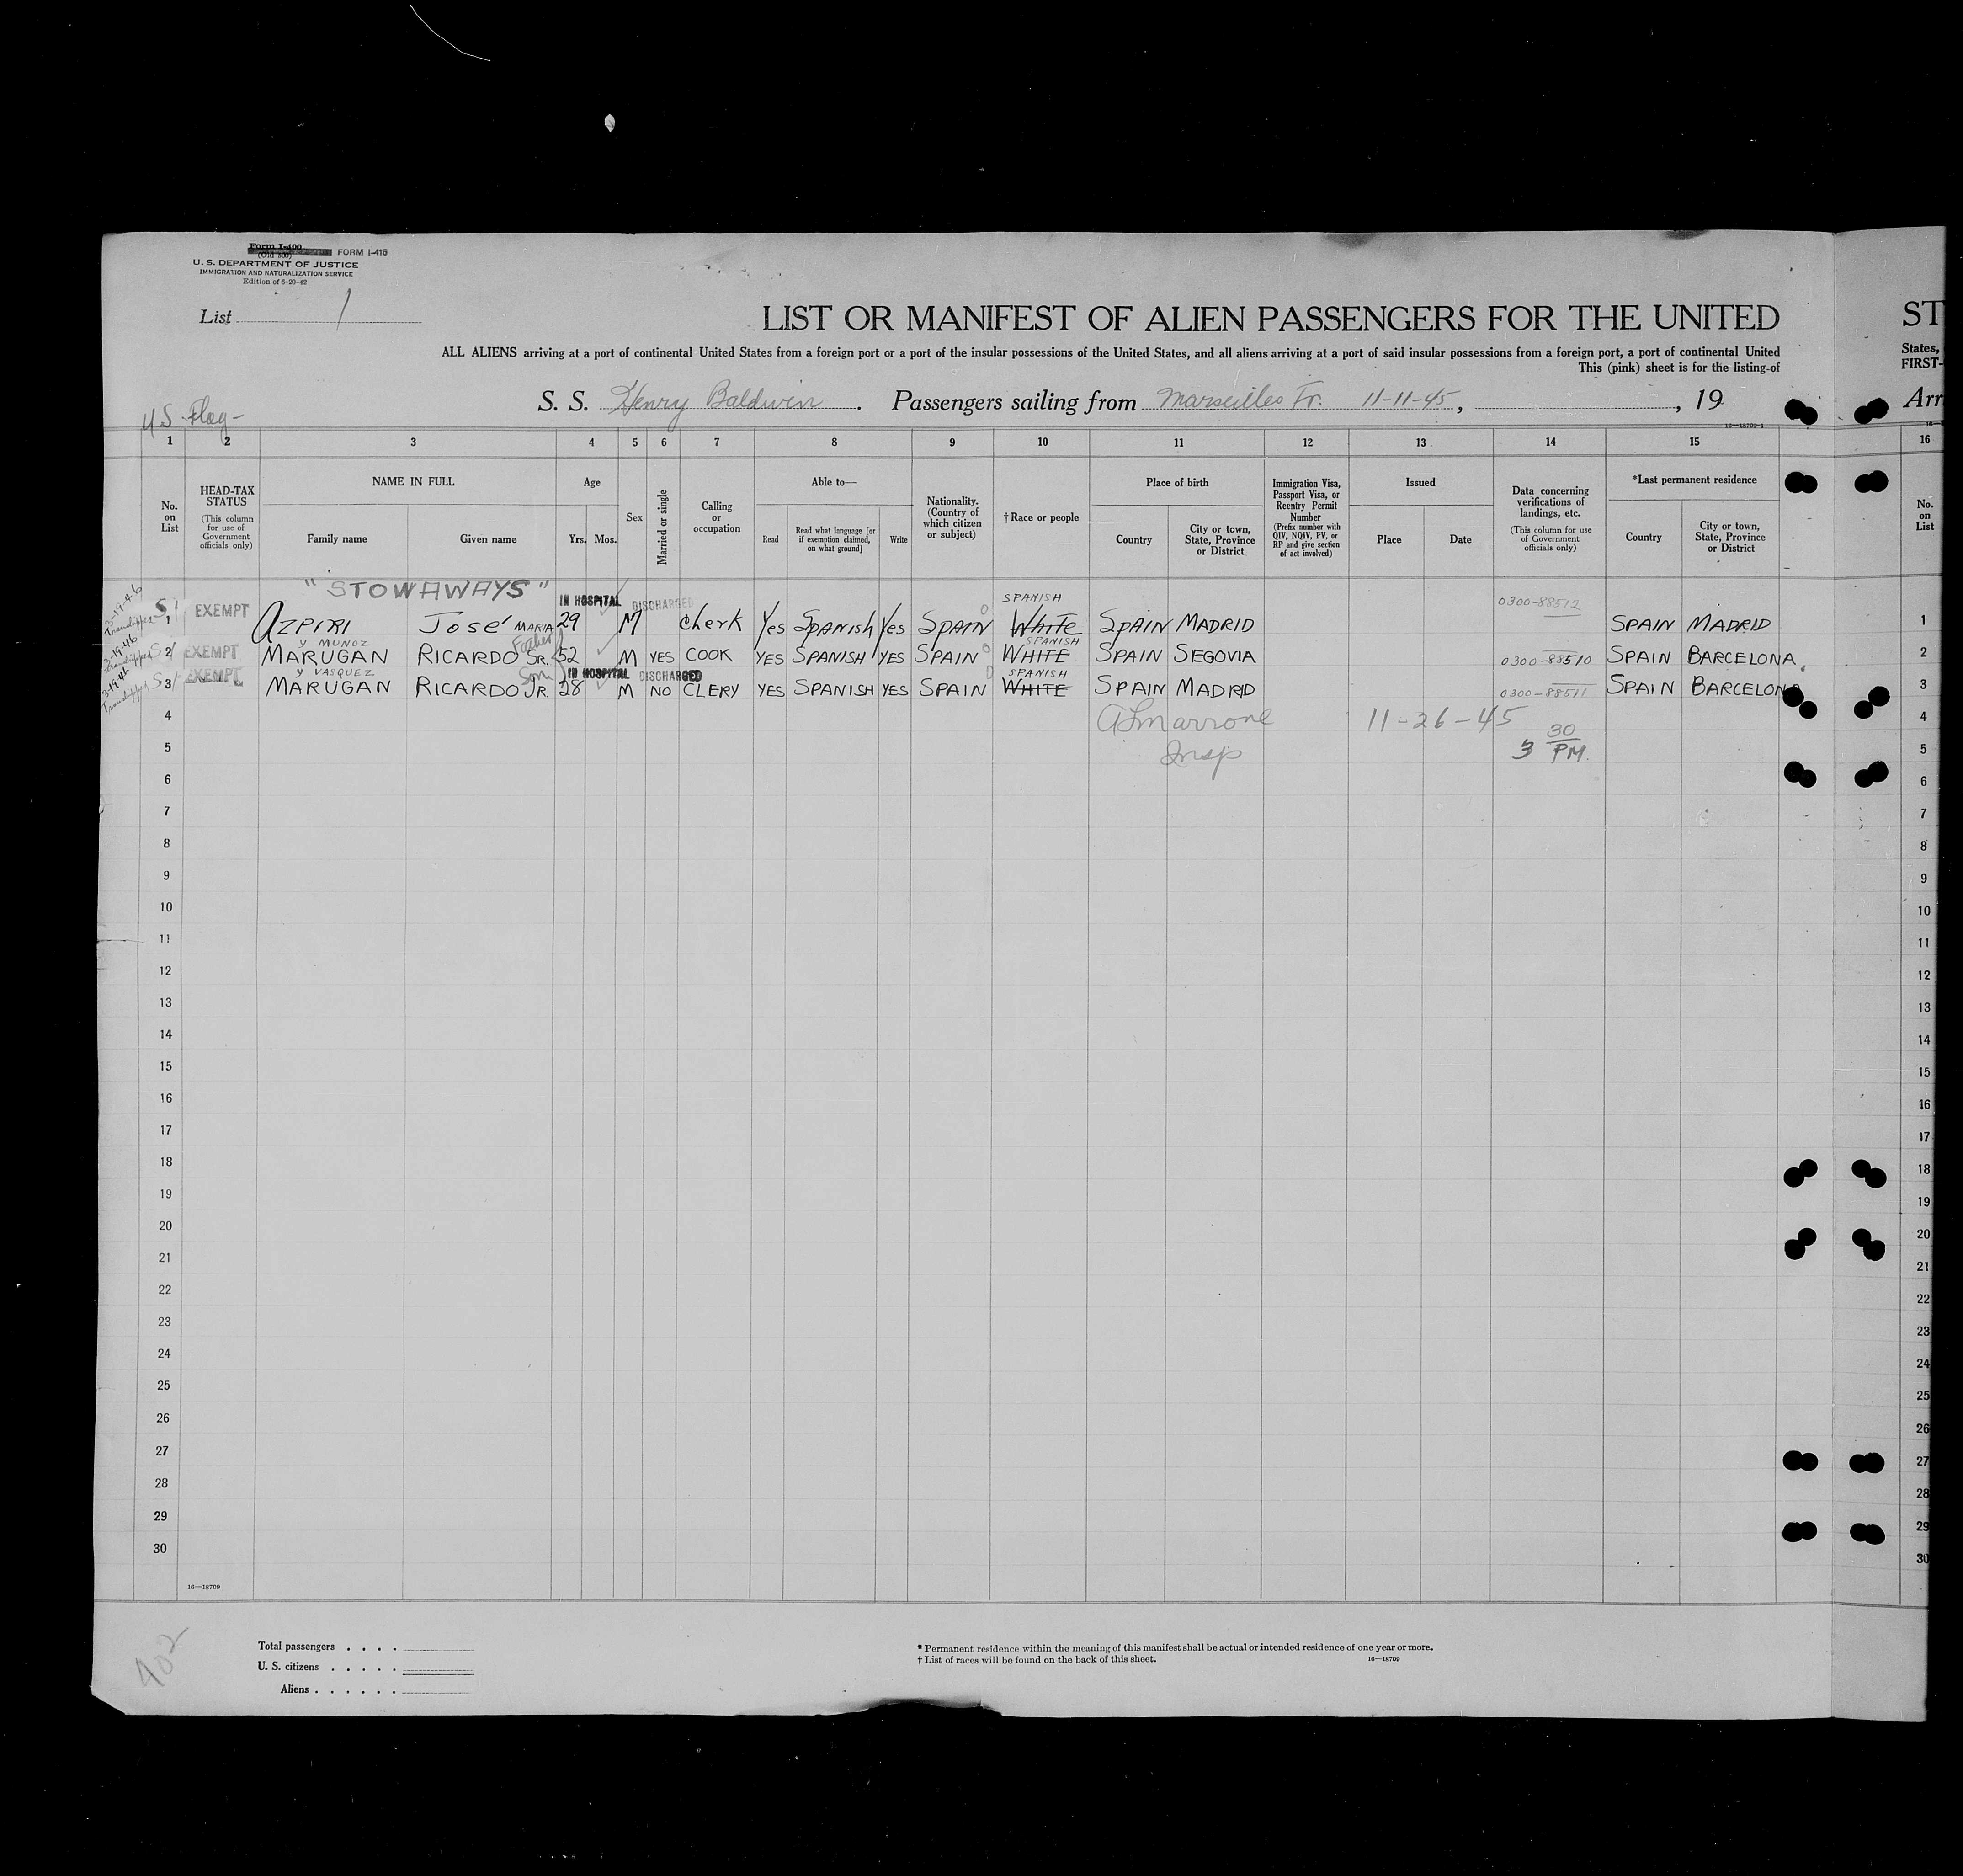 Form I-400
(Old 500) FORM I-418
U. S. DEPARTMENT OF JUSTICE
IMMIGRATION AND NATURALIZATION SERVICE
Edition of 6-20-42
List 1
LIST OR MANIFEST OF ALIEN PASSENGERS FOR THE UNITED
ST
ALL ALIENS arriving at a port of continental United States from a foreign port or a port of the insular possessions of the United States, and all aliens arriving at a port of said insular possessions from a foreign port, a port of continental United
States,
This (pink) sheet is for the listing of
FIRST-
S. S. Henry Baldwin. Passengers sailing from Marseilles Fr. 11-11-45, , 19
Arr
U.S. Flag-
16—18709-1
1 2 3 4 5 6 7 8 9 10 11 12 13 14 15 16
No. on List
HEAD-TAX STATUS
(This column for use of Government officials only)
NAME IN FULL
Family name Given name
Age
Yrs. Mos.
Sex
Married or single
Calling or occupation
Able to—
Read
Read what language [or if exemption claimed, on what ground]
Write
Nationality. (Country of which citizen or subject)
†Race or people
Place of birth
Country
City or town, State, Province or District
Immigration Visa, Passport Visa, or Reentry Permit Number
(Prefix number with QIV, NQIV, PV, or RP and give section of act involved)
Issued
Place Date
Data concerning verifications of landings, etc.
(This column for use of Government officials only)
*Last permanent residence
Country
City or town, State, Province or District
No. on List
"STOWAWAYS"
IN HOSPITAL DISCHARGED SPANISH 0300-88512
S 1 EXEMPT AZPIRI José MARIA 29 M Clerk Yes SPANISH Yes SPAIN White SPAIN MADRID SPAIN MADRID 1
y MUNOZ Father SPANISH
S 2 EXEMPT MARUGAN RICARDO SR. 52 M YES COOK YES SPANISH YES SPAIN WHITE SPAIN SEGOVIA 0300-88510 SPAIN BARCELONA. 2
y VASQUEZ Son IN HOSPITAL DISCHARGED SPANISH
S 3 EXEMPT MARUGAN RICARDO JR. 28 M NO CLERY YES SPANISH YES SPAIN WHITE SPAIN MADRID 0300-88511 SPAIN BARCELONA 3
4 11-26-45 4
5 Insp 3 30 PM. 5
6 6
7 7
8 8
9 9
10 10
11 11
12 12
13 13
14 14
15 15
16 16
17 17
18 18
19 19
20 20
21 21
22 22
23 23
24 24
25 25
26 26
27 27
28 28
29 29
30 30
16—18709
402
Total passengers . . . .
U. S. citizens . . . . .
Aliens . . . . . .
* Permanent residence within the meaning of this manifest shall be actual or intended residence of one year or more.
† List of races will be found on the back of this sheet. 16—18709